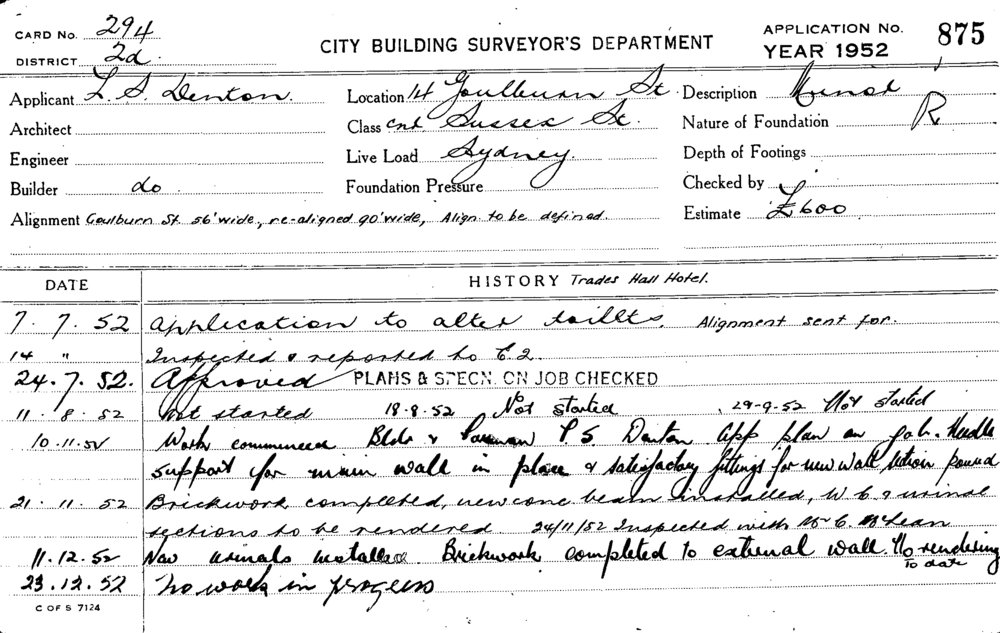 CARD No. 294
DISTRICT 2d.
CITY BUILDING SURVEYOR'S DEPARTMENT
APPLICATION No. 875
YEAR 1952
Applicant L. S. Denton.
Location 14 Goulburn St.
Description Urinal R
Architect
Class cnr Sussex St.
Nature of Foundation
Engineer
Live Load Sydney.
Depth of Footings
Builder do
Foundation Pressure
Checked by
Alignment Goulburn St. 56' wide, re-aligned 90' wide, Align. to be defined.
Estimate £600
DATE HISTORY Trades Hall Hotel.
7. 7. 52 Application to alter toilets. Alignment sent for.
14 " Inspected & reported to C.2.
24.7.52. Approved PLANS & SPECN. ON JOB CHECKED
11. 8. 52 Not started 18.8.52 Not started 29-9.52 Not started
10.11.52 Work commenced Bldr & Foreman S Denton App plan on job. Needle
support for main wall in place & satisfactory fittings for new wall
21. 11. 52 Brickwork completed, new conc beam installed, W C & urinal
sections to be rendered 24/11/52 Inspected with Mr C. McLean
11.12.52 New urinals installed Brickwork completed to external wall. No rendering
To date
23.12.52 No work in progress
C OF S 7124